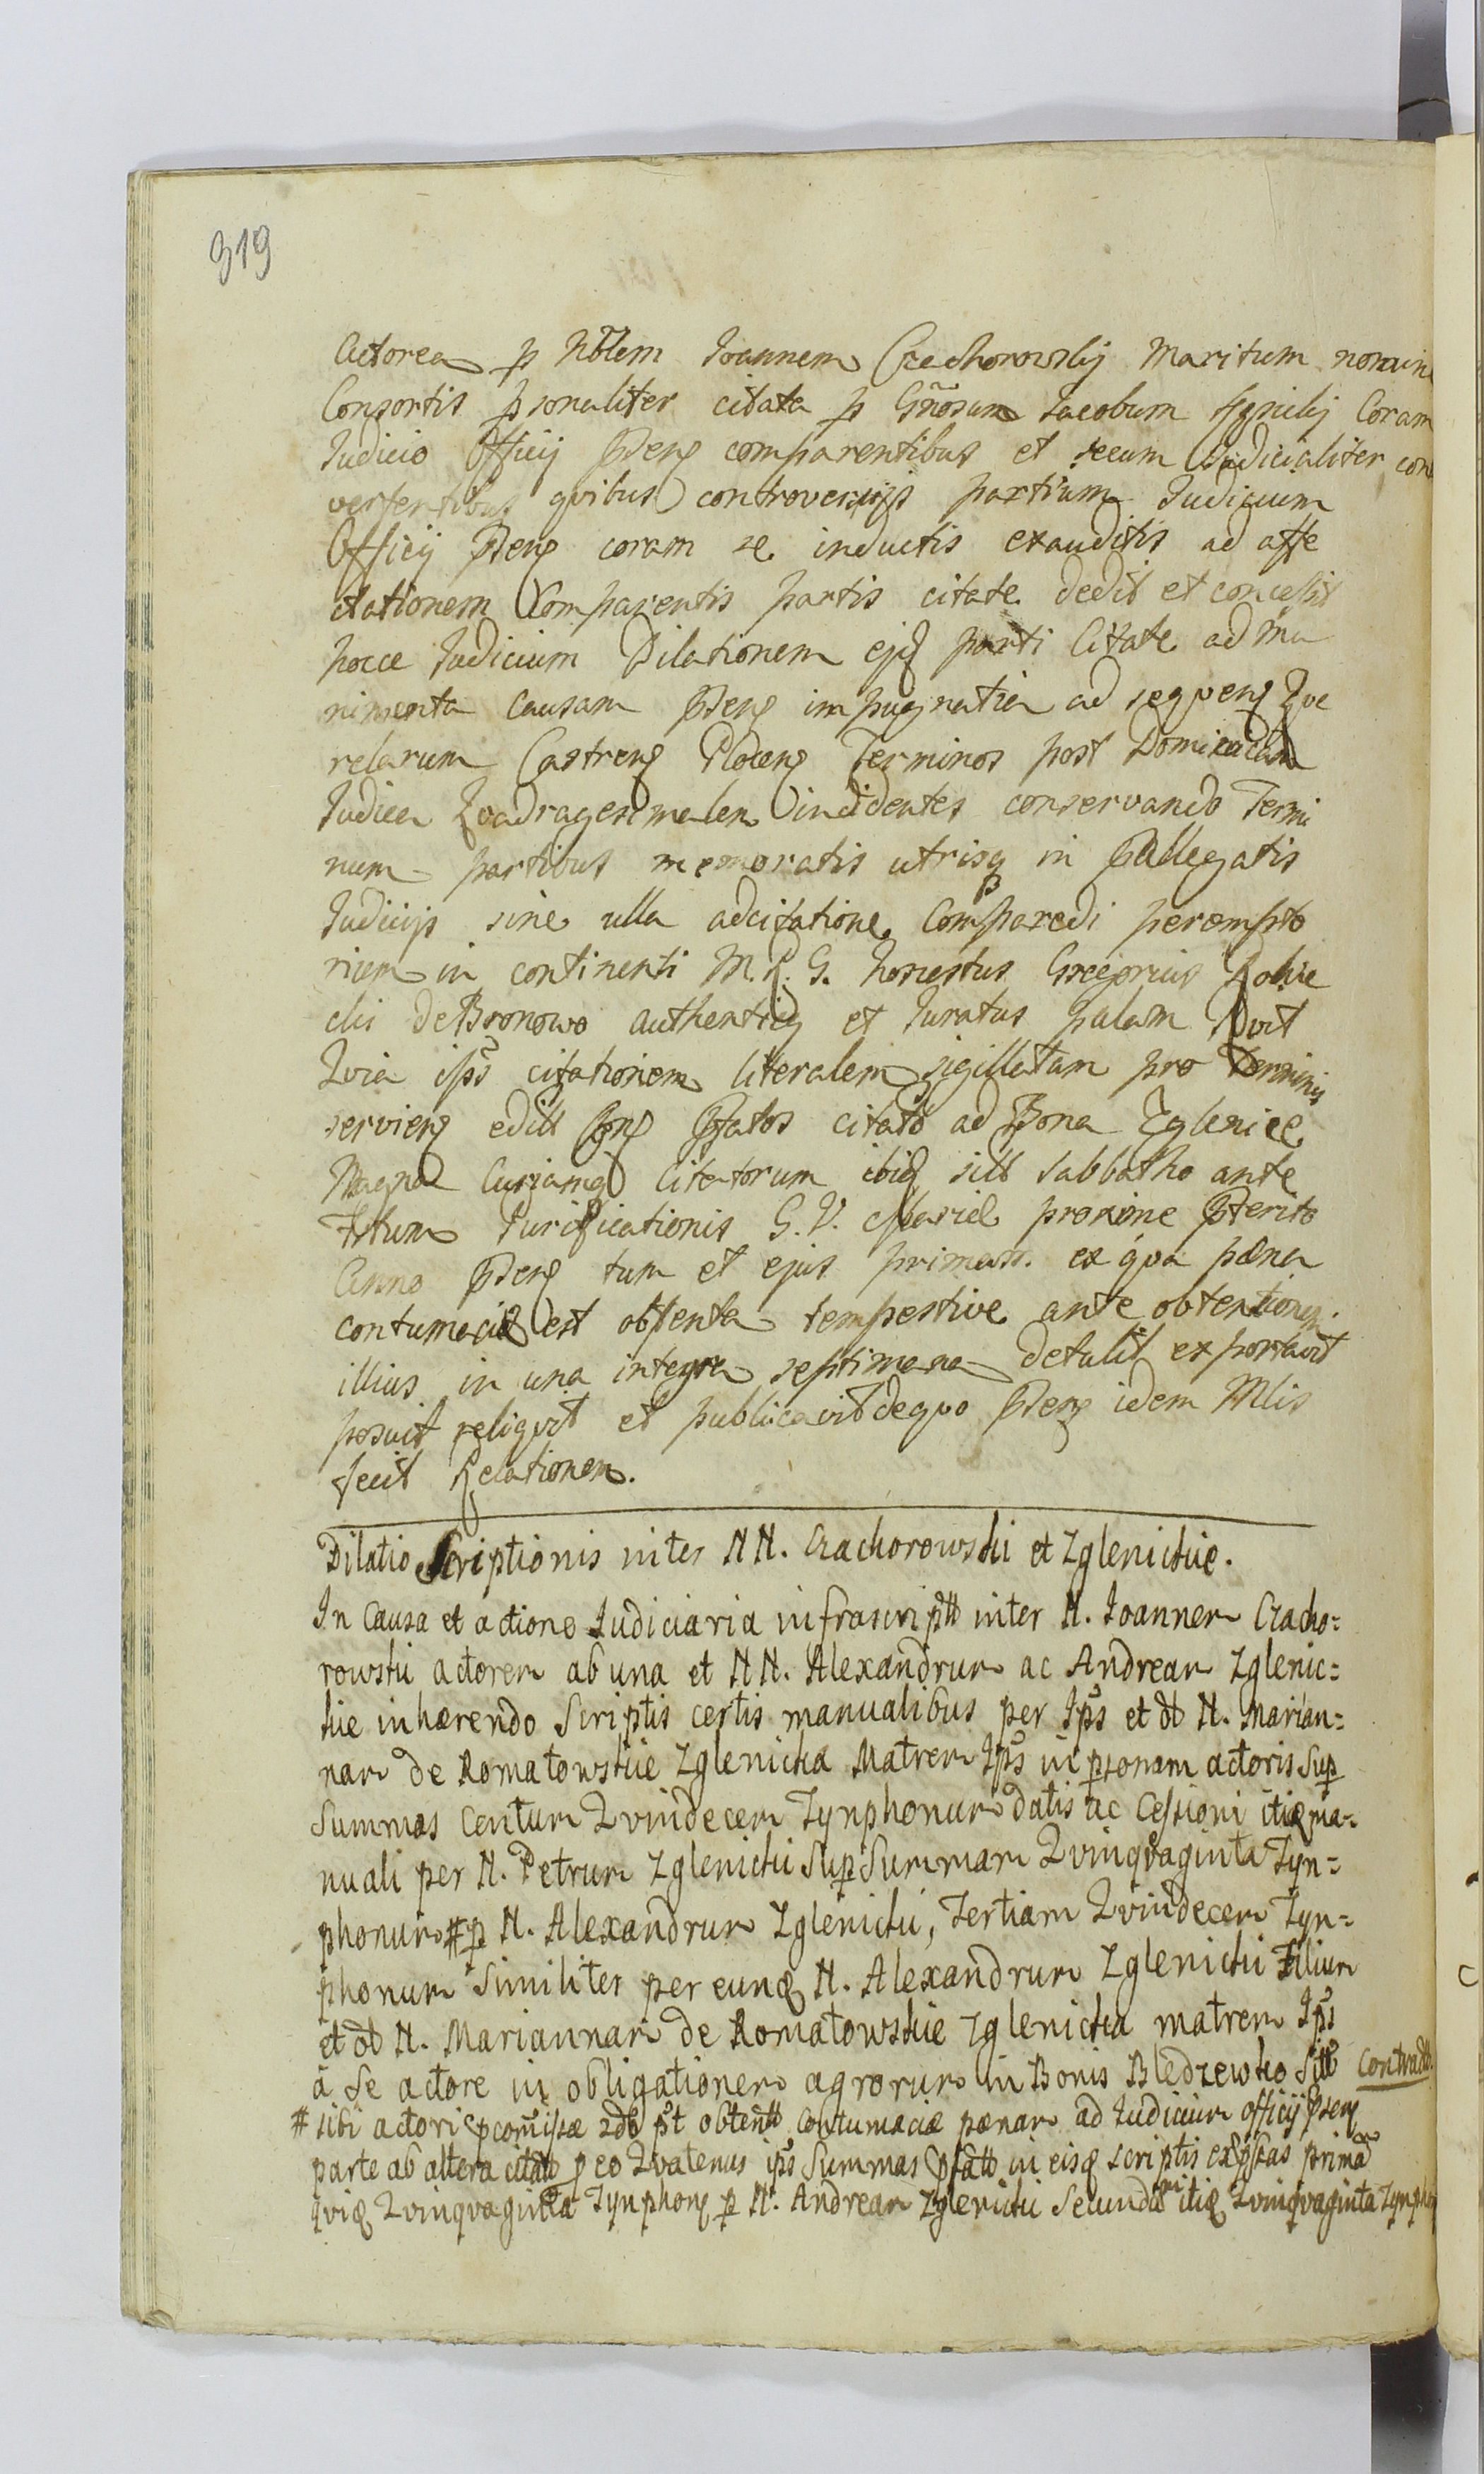 319
Actorea p Nblem Joannem Czachorowskj Maritum nomin
Consortis psonaliter citata p Gnosum Jacobum Coram
Judicio Officij Pdens comparentibus et secum Judicialiter con
versentibus qvibus controversijs partium Judicium
Officij Pdens coram se inductis exauditis ad affe
ctationem Comparentis partis citate dedit et concessit
hocce Judicium Dilationem ejq parti Citate ad mu
nimenta causam Pdens impugnatia ad seqvens Qve
relarum Castrens Plocens Terminos post Dominicam
Judica Qvadragesimalem incidentes conservando Termi
num partibus memoratis utrisq in Pallegatis
Judicijs sine ulla adcitatione Comparedi perempto
rium in continenti M. R. G. honestus Gregorius
de Bronowo authenticq et Juratus palam
Qvia ips citationem literalem sigillatam pro Terminis
serviens edill Pfatos citato ad Bona Zglenice
Magna Curiamq Citatorum ibiq sitt Sabbatho ante
Fstum Purificationis G. V. Mariæ proxime Pterito
Anno Pdens tum et ejus primam. ex qva pæna
contumaciæ est obtenta tempestive ante obtentionem
illius in una integra septimana detulit exportavit
posuit reliqvit et publicavit de qvo Pdens idem Mlis
fecit Relationem.
Dilatio Scriptionis inter NN. Czachorowski et Zglenickie.
In Causa et actione Judiciaria infrascriptt inter N. Joannem Czacho=
rowski actorem ab una et NN. Alexandrum ac Andream Zglenic=
kie inhærendo Scriptis certis manualibus per Ips et ol N. Marian=
nam de Romatowskie Zglenicka Matrem Ips in psonam actoris sup
Summas Centum Qvindecem Tynphonum datis ac Cessioni itiq ma=
nuali per N. Petrum Zglenicki sup Summam Qvinqvaginta Tyn=
phonum # p N. Alexandrum Zglenicki, Tertiam Qvindecem Tyn=
phonum Similiter per eunq N. Alexandrum Zglenicki Filium
et ol N. Mariannam de Romatowskie Zglenicka matrem Ips
à Se actore in obligationem agrorum in Bonis Bledzewko Sitt Contradtt
# sibi actori pcomissæ pt obtentt contumaciæ pænam ad Judicium officij psens
parte ab altera citato p eo Qvatenus ips Summas pfatt in eisq scriptis expssas primã
qviq Qvinqvaginta Tynphons p N. Andream Zglenicki Secundã itiq Qvinqvaginta Tynpho